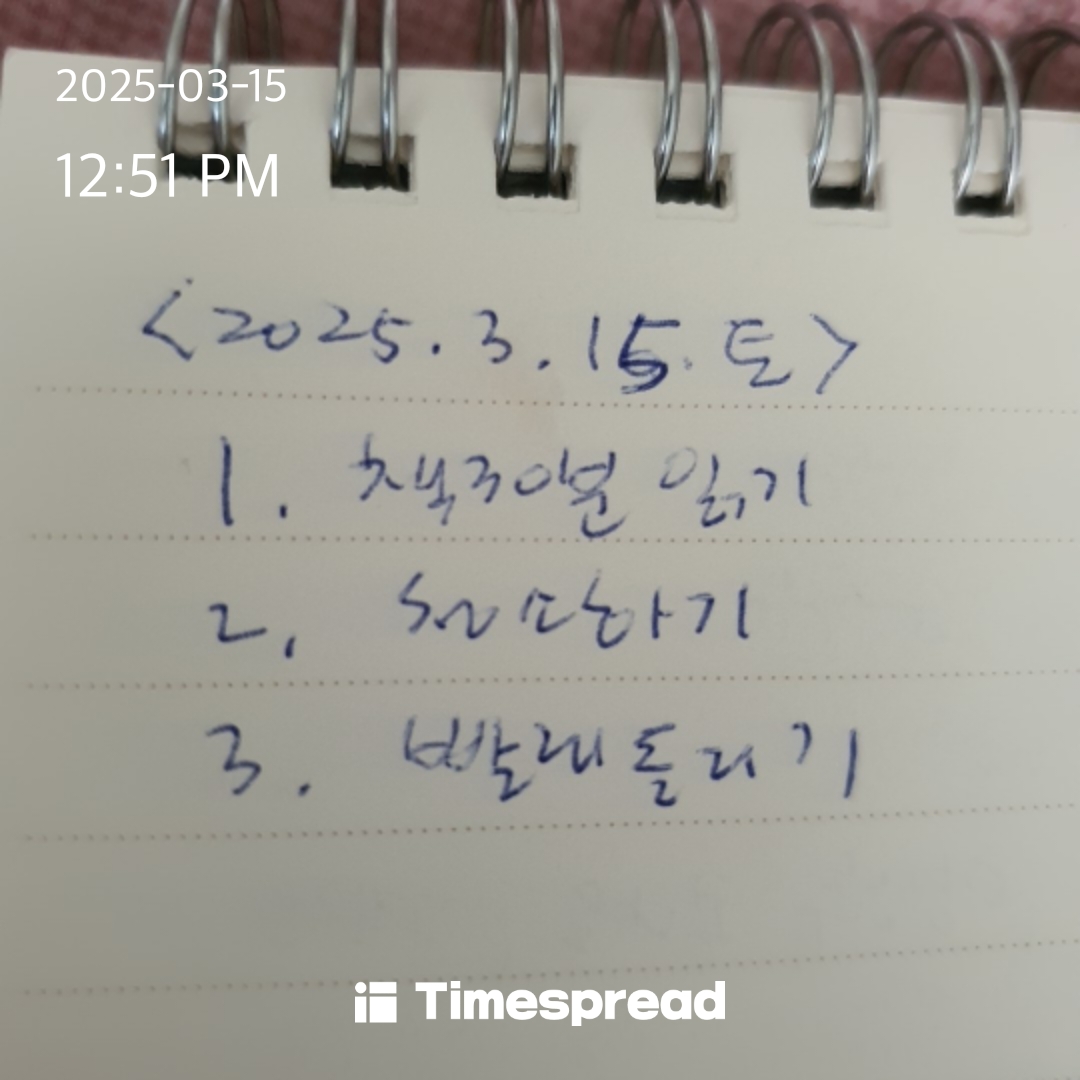 2025-03-15
12:51 PM
<2025.3.15.토>
1. 책30분 읽기
2. 청소하기
3. 빨래돌리기
Timespread